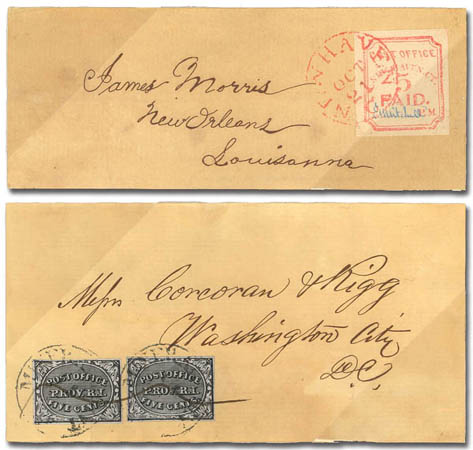 James Morris
New Orleans
Louisanna
NEW HAVEN
OCT
21
POST OFFICE
NEW HAVEN, CT.
PAID.
P.M.
Messrs Corcoran & Rigg
Washington City
D.C.
POST OFFICE
PROV. R.I.
FIVE CENTS
POST OFFICE
PROV. R.I.
FIVE CENTS